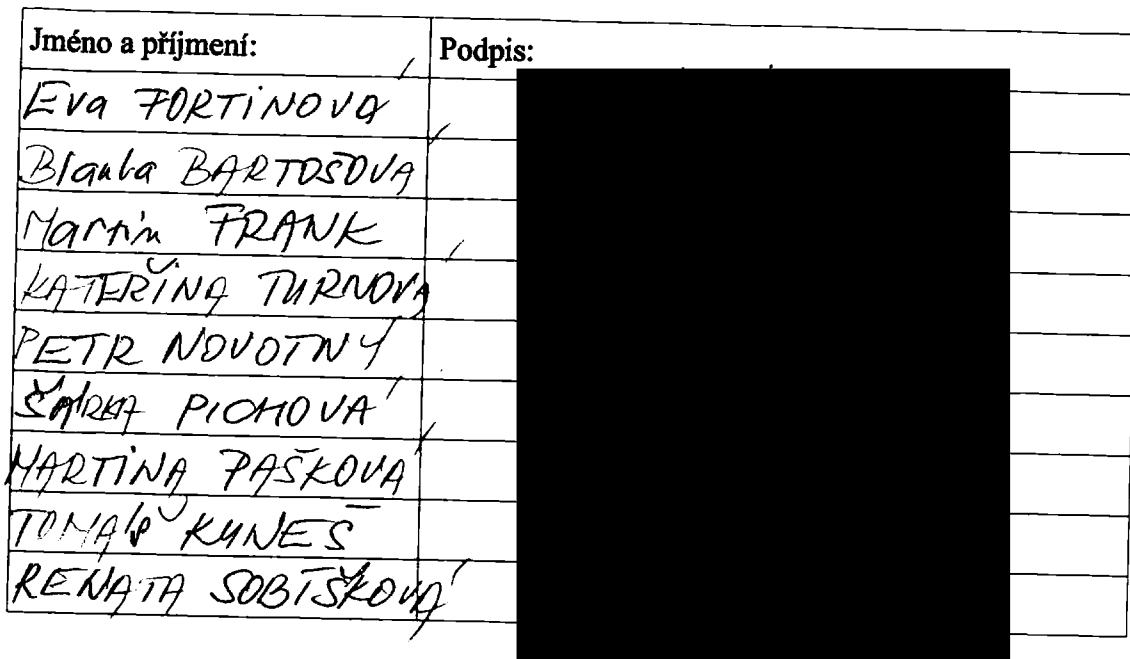 Jméno a příjmení: Podpis:
Eva FORTINOVÁ
Blanka BARTOŠOVÁ
Martin FRANK
KATEŘINA TURNOVÁ
PETR NOVOTNÝ
ŠÁRKA PICHOVÁ
MARTINA PAŠKOVÁ
TOMÁŠ KUNEŠ
RENATA SOBÍŠKOVÁ